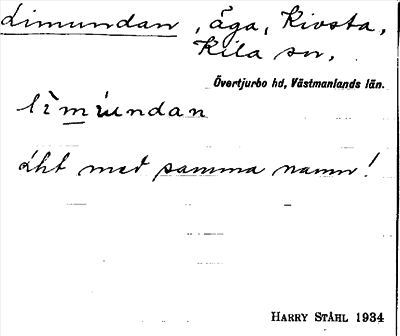 Limundan, äga, Kivsta,
Kila sn,
Övertjurbo hd, Västmanlands län.
lìmúndan
med samma namn!
HARRY STÅHL 1934